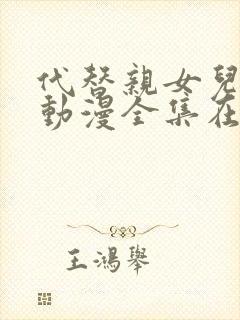 代替親女兒
動漫全集在
王鴻舉